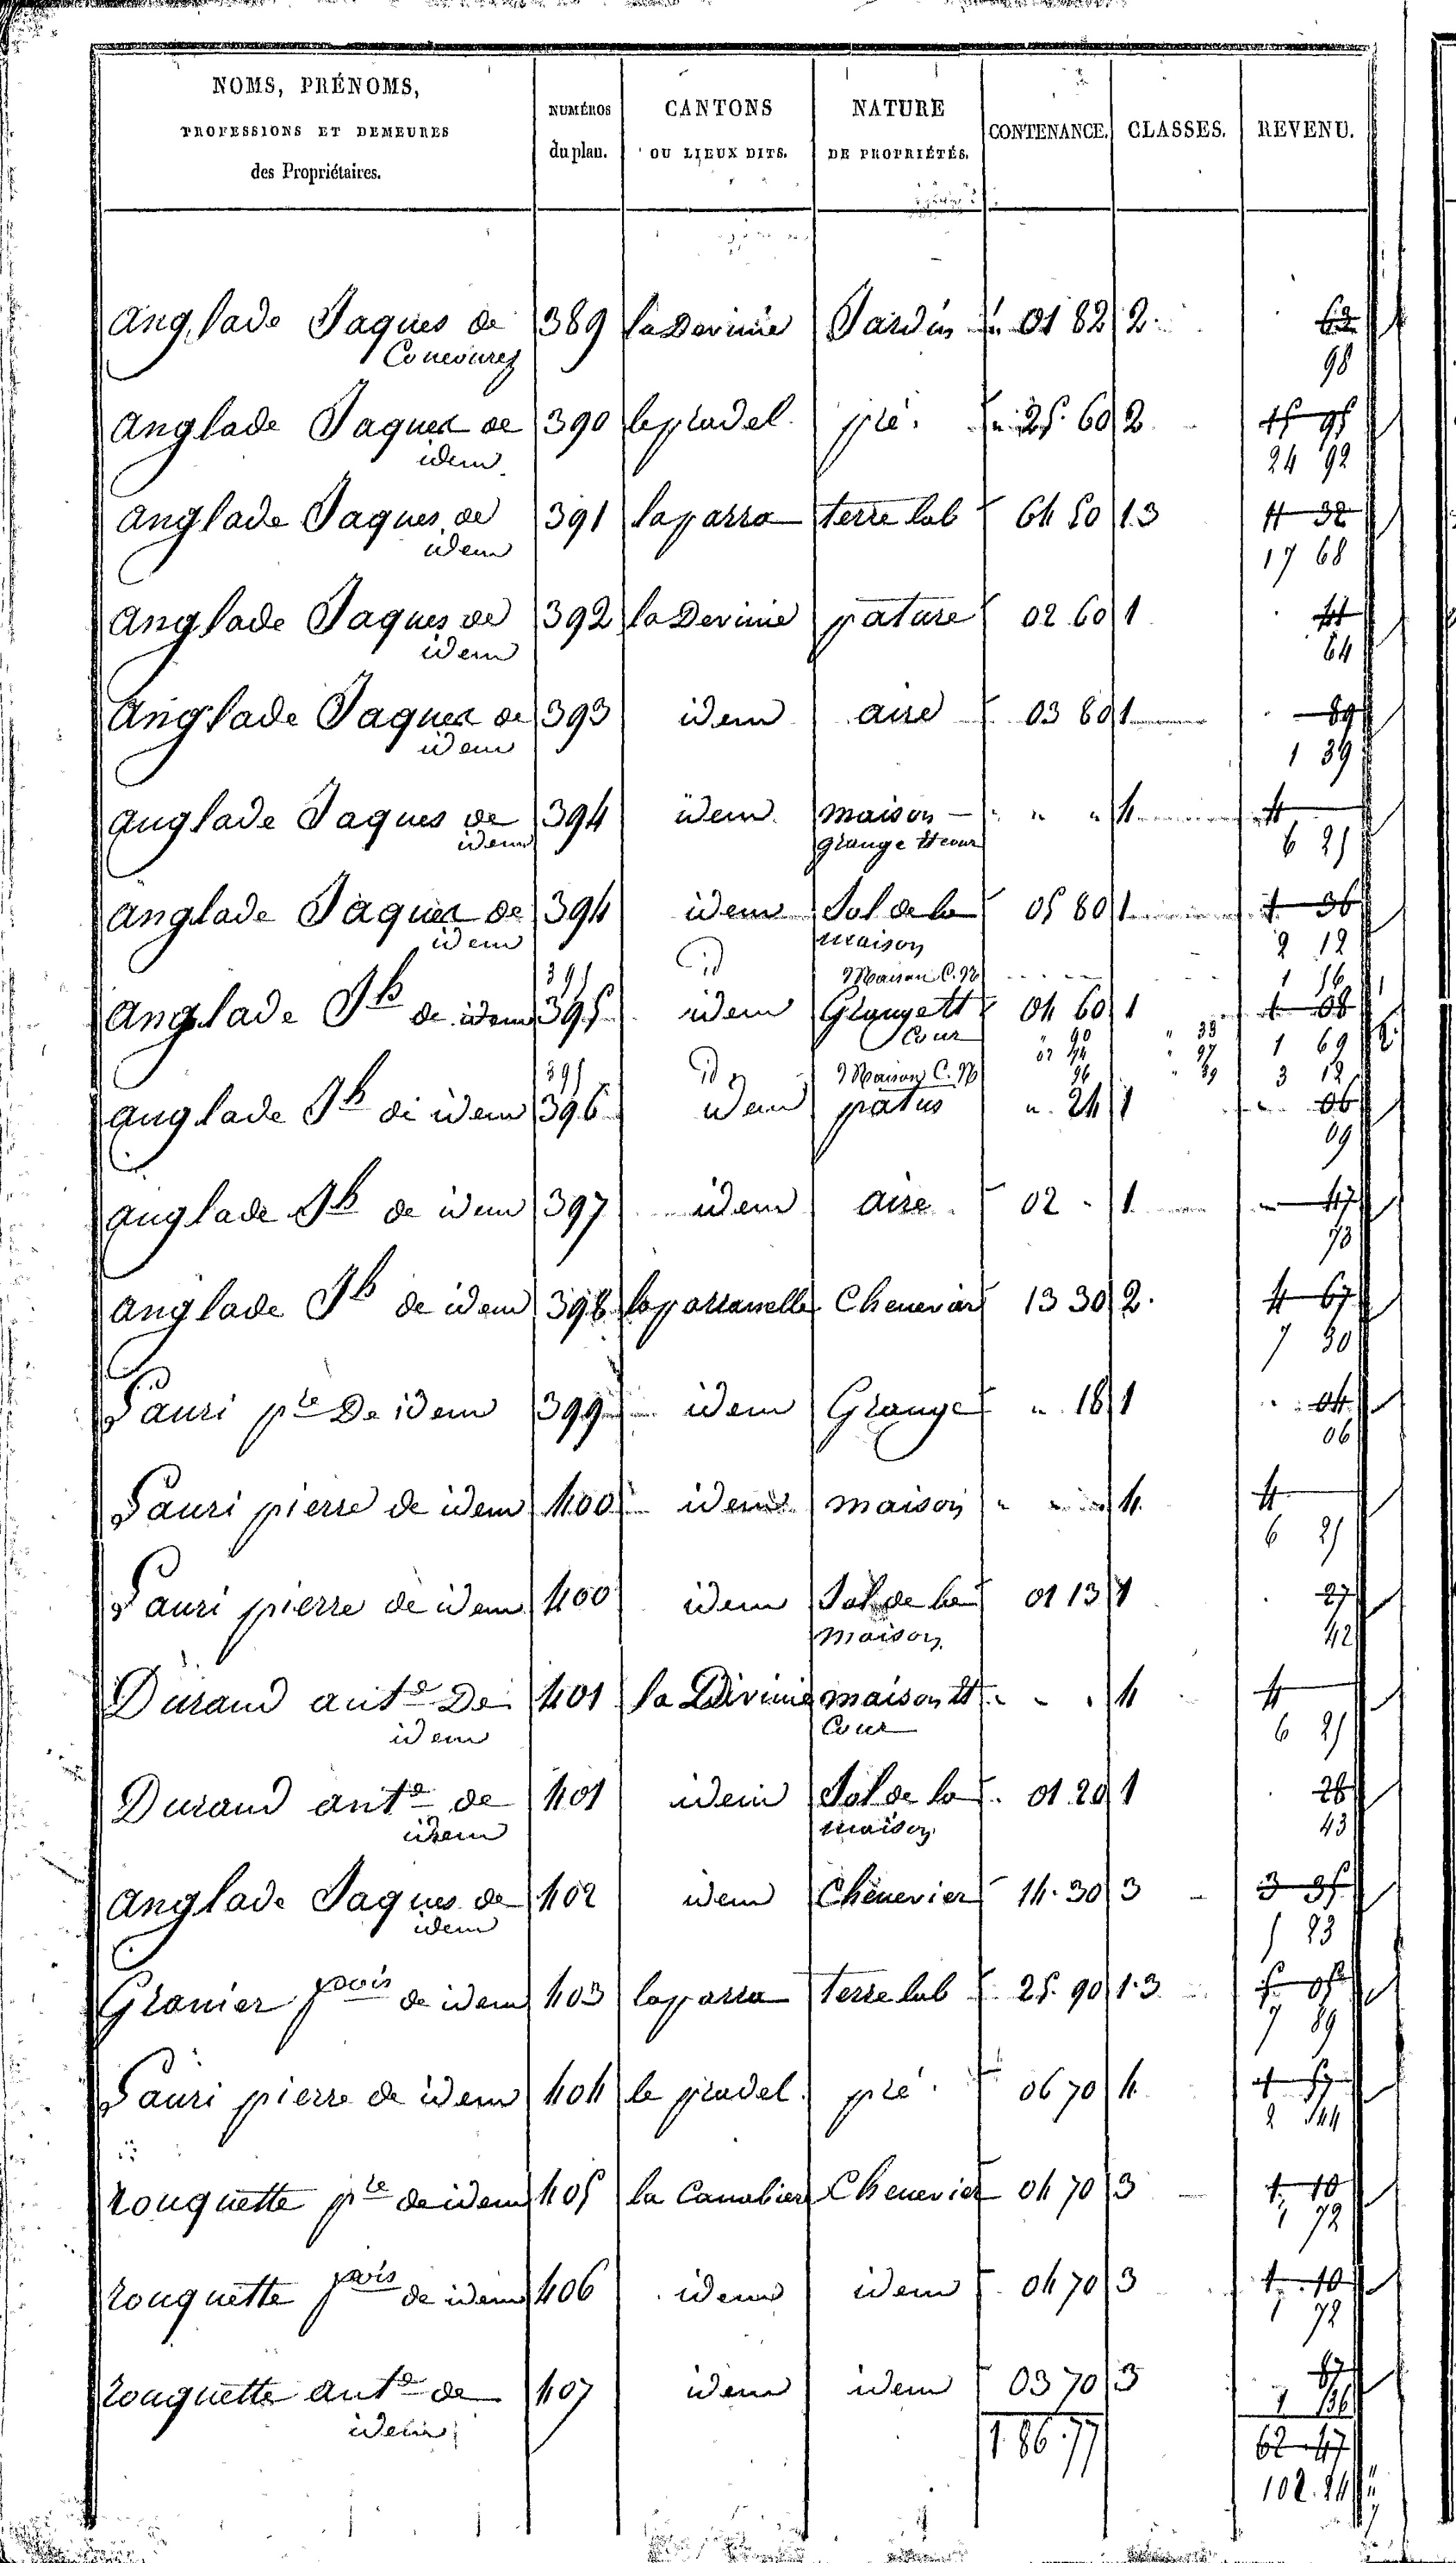 NOMS, PRÉNOMS, PROFESSIONS ET DEMEURES des Propriétaires. | NUMÉROS du plan. | CANTONS OU LIEUX DITS. | NATURE DE PROPRIÉTÉS. | CONTENANCE. | CLASSES. | REVENU.
anglade Jaques de 389 la Devinie Jardin 01 82 2
98
anglade Jaques de 390 le pradel pré 25 60 2 15 95
idem 24 92
anglade Jaques de 391 la parra terre lab 64 50 1.3 11 32
idem 17 68
anglade Jaques de 392 la Devinie pature 02 60 1
idem 64
anglade Jaques de 393 idem aire 03 80 1 89
idem 1 39
anglade Jaques de 394 idem maison 4 4
idem grange et cour 6 25
anglade Jaques de 394 idem Sol de la 05 80 1 1 36
idem maison 2 12
395 id Maison C. N 1 16
anglade Jh de idem 395 idem Grange et 04 60 1 1 08
Cour 1 69
395 id Maison C. N 3 12
anglade Jh de idem 396 idem patus 24 1 06
09
anglade Jh de idem 397 idem aire 02 1 47
73
anglade Jh de idem 398 Chenevier 13 30 2 4 67
7 30
Sauri pre De idem 399 idem Grange 18 1 04
06
Sauri pierre de idem 400 idem maison 4 4
6 25
Sauri pierre de idem 400 idem Sol de la 01 13 1 27
maison 42
Durand ante De 401 la Divinie maison et 4 4
idem Cour 6 25
Durand ante de 401 idem Sol de la 01 20 1 28
idem maison 43
anglade Jaques de 402 idem Chenevier 14 30 3 3 35
idem 5 23
Granier fcois de idem 403 la parra terre lab 25 90 1.3 5 05
7 89
Sauri pierre de idem 404 le pradel pré 06 70 4 1 57
2 44
rouquette pre de idem 405 la Canabiere Chenevier 04 70 3 1 10
1 72
rouquette fcois de idem 406 idem idem 04 70 3 1 10
1 72
rouquette ante de 407 idem idem 03 70 3 87
idem 1 36
1 86 77 62 47
102